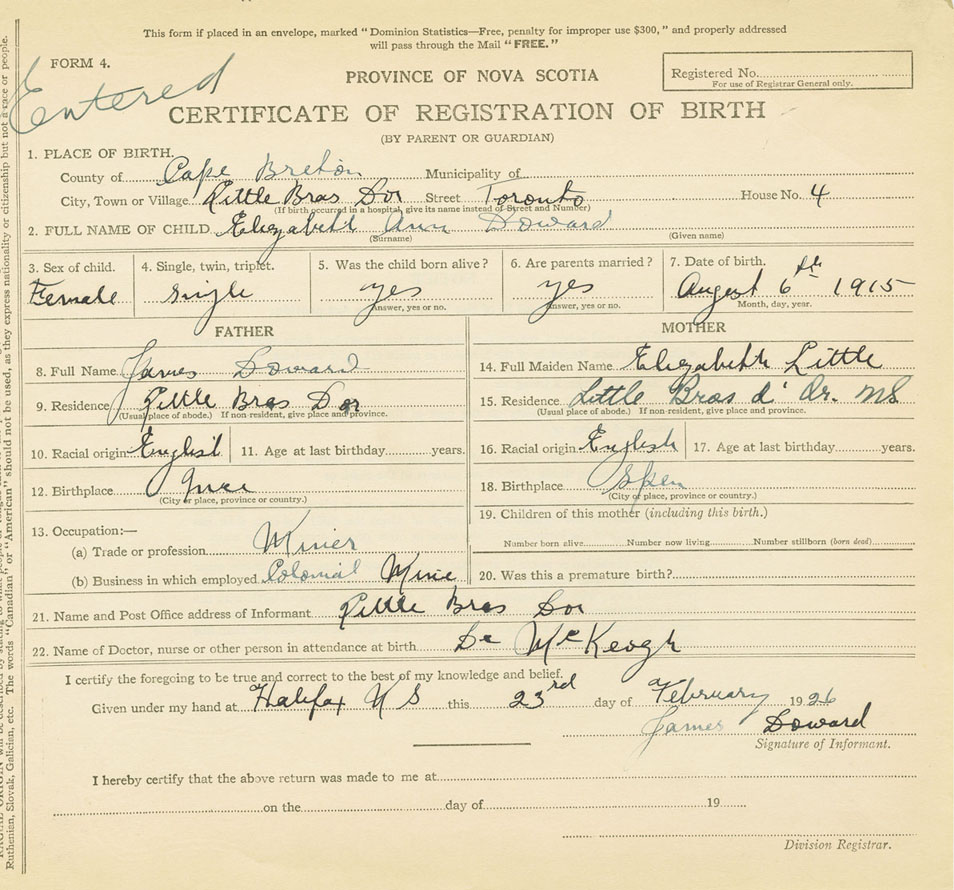 This form if placed in an envelope, marked "Dominion Statistics—Free, penalty for improper use $300," and properly addressed
will pass through the Mail "FREE."
FORM 4.
Entered
PROVINCE OF NOVA SCOTIA
Registered No.
For use of Registrar General only.
CERTIFICATE OF REGISTRATION OF BIRTH
(BY PARENT OR GUARDIAN)
1. PLACE OF BIRTH.
County of Cape Breton Municipality of
City, Town or Village Little Bras Dor Street Toronto House No. 4
(If birth occurred in a hospital, give its name instead of Street and Number)
2. FULL NAME OF CHILD Elizabeth Ann Doward
(Surname) (Given name)
3. Sex of child. 4. Single, twin, triplet. 5. Was the child born alive? 6. Are parents married? 7. Date of birth.
Female single yes yes August 6th 1915
Answer, yes or no. Answer, yes or no. Month, day, year.
FATHER MOTHER
8. Full Name James Doward
14. Full Maiden Name Elizabeth Little
9. Residence Little Bras Dor
(Usual place of abode.) If non-resident, give place and province.
15. Residence Little Bras d' Or. NS
(Usual place of abode.) If non-resident, give place and province.
10. Racial origin English 11. Age at last birthday years.
16. Racial origin English 17. Age at last birthday years.
12. Birthplace
(City or place, province or country.)
18. Birthplace
(City or place, province or country.)
13. Occupation:—
19. Children of this mother (including this birth.)
(a) Trade or profession Miner
Number born alive Number now living Number stillborn (born dead)
(b) Business in which employed Colonial Mine
20. Was this a premature birth?
21. Name and Post Office address of Informant Little Bras Dor
22. Name of Doctor, nurse or other person in attendance at birth McKeogh
I certify the foregoing to be true and correct to the best of my knowledge and belief.
Given under my hand at Halifax N S this 23rd day of February 1926
James Doward
Signature of Informant.
I hereby certify that the above return was made to me at
on the day of 19
Division Registrar.
Ruthenian, Slovak, Galician, etc. The words "Canadian" or "American" should not be used, as they express nationality or citizenship but not a race or people.